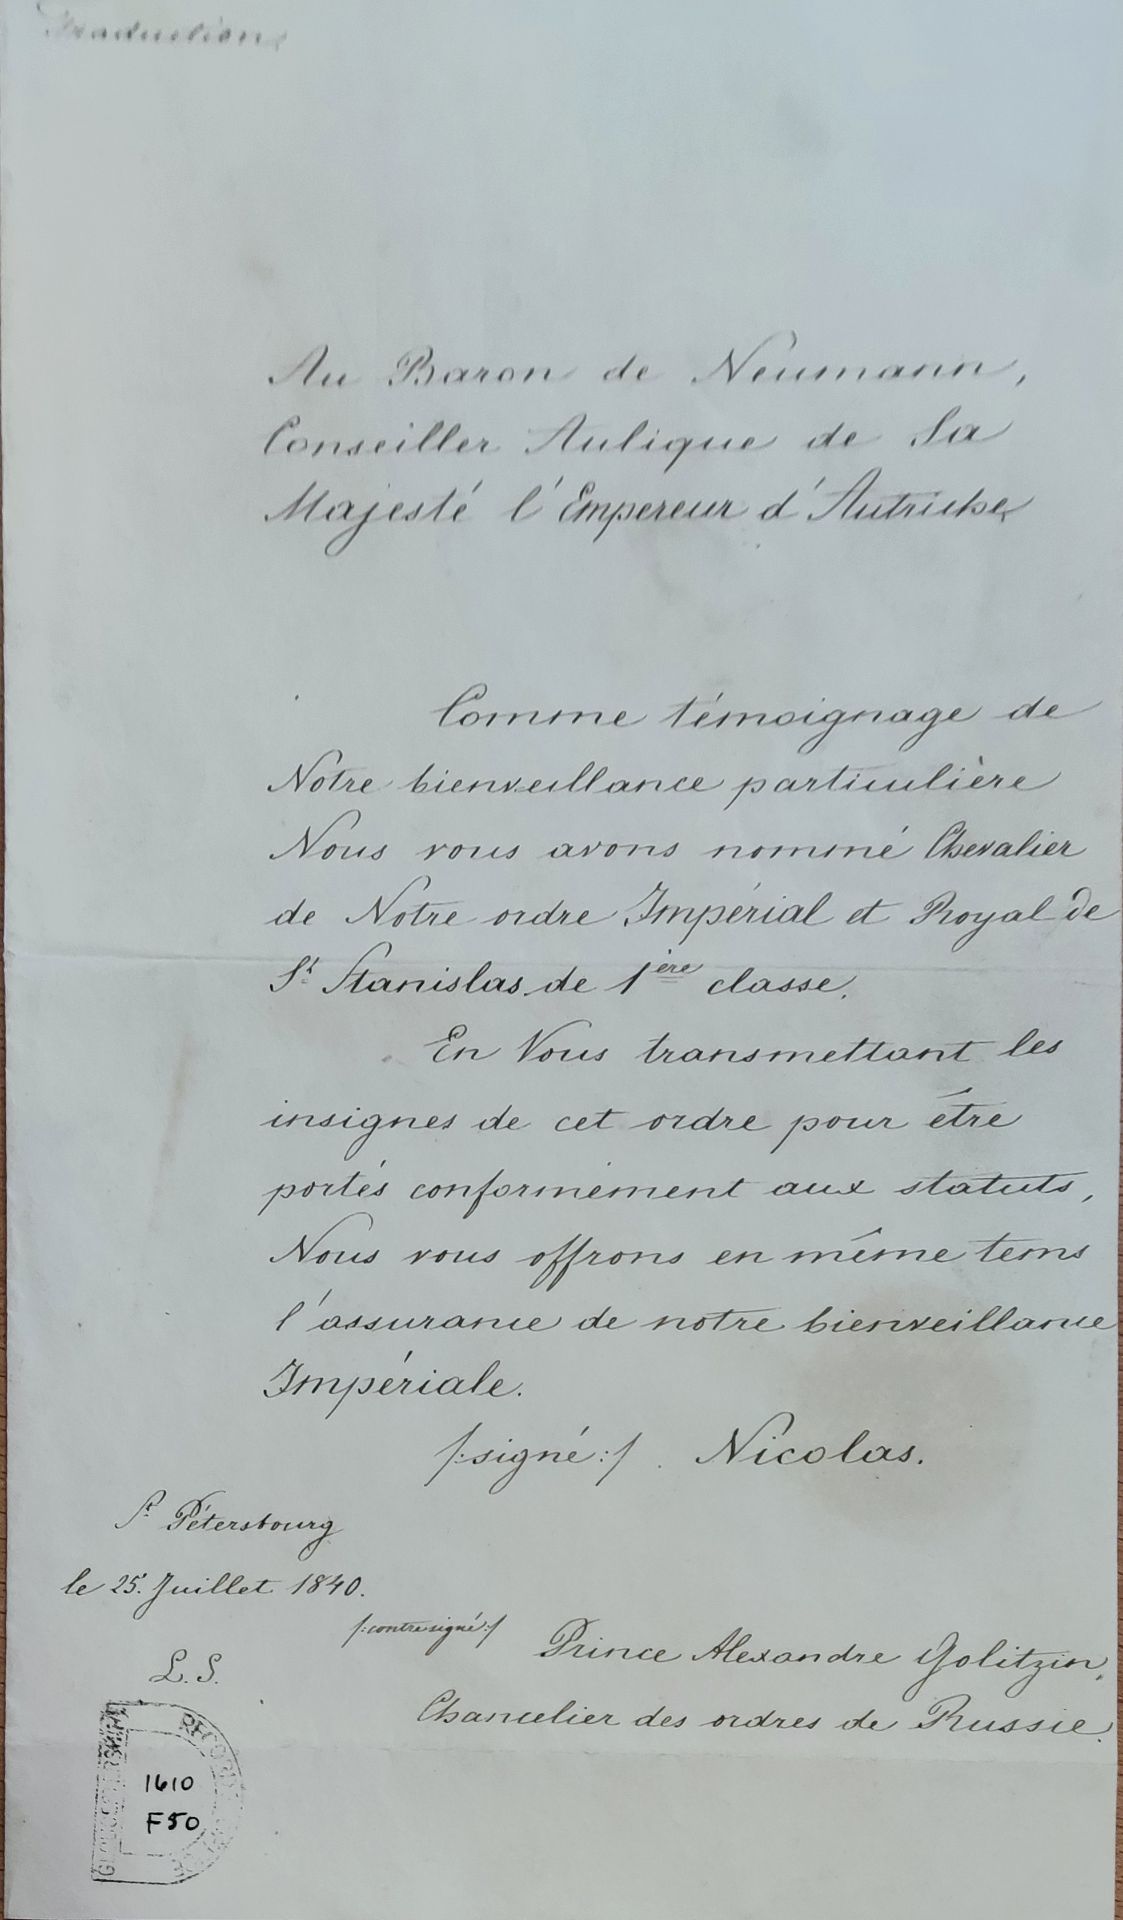 Traduction
Au Baron de Neumann,
Conseiller Aulique de Sa
Majesté l'Empereur d'Autriche
Comme témoignage de
Notre bienveillance particulière
Nous vous avons nommé Chevalier
de Notre ordre Impérial et Royal de
St. Stanislas de 1ère classe.
En Vous transmettant les
insignes de cet ordre pour être
portés conformément aux statuts,
Nous vous offrons en même tems
l'assurance de notre bienveillance
Impériale.
/:signé:/. Nicolas.
St. Pétersbourg
le 25. Juillet 1840.
/:contresigné:/ Prince Alexandre Golitzin,
Chancelier des ordres de Russie.
L.S.
1610
F50